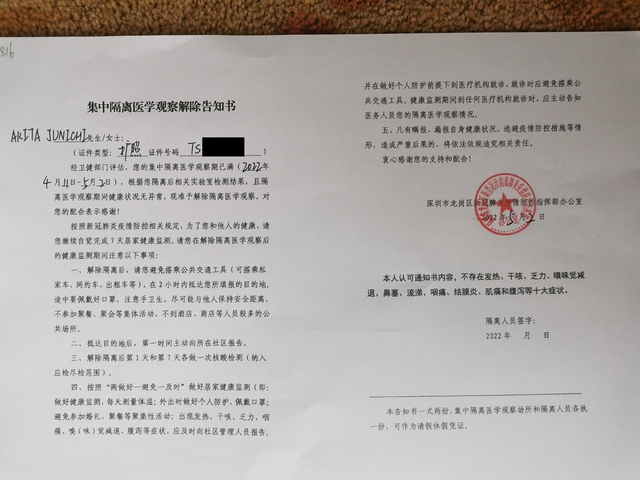 816
集中隔离医学观察解除告知书
AKITA JUNICHI先生/女士:
(证件类型:护照 证件号码:TS
经卫健部门评估,您的集中隔离医学观察期已满(2022年
4月11日-5月2日),根据您隔离后相关实验室检测结果,且隔
离医学观察期间健康状况无异常,现准予解除隔离医学观察,对
您的配合表示感谢!
按照新冠肺炎疫情防控相关规定,为了您和他人的健康,请
您继续自觉完成7天居家健康监测,请您在解除隔离医学观察后
的健康监测期间注意以下事项:
一、解除隔离后,请您避免搭乘公共交通工具(可搭乘私
家车、网约车、出租车等),在2小时内抵达您所填报的目的地,
途中要佩戴好口罩,注意手卫生,尽可能与他人保持安全距离,
不参加聚餐、聚会等集体活动,不到酒店、商店等人员较多的公
共场所。
二、抵达目的地后,第一时间主动向所在社区报告。
三、解除隔离后第1天和第7天各做一次核酸检测(纳入
应检尽检范围)。
四、按照“两做好一避免一及时”做好居家健康监测(即:
做好健康监测,每天测量体温;外出时做好个人防护,佩戴口罩;
避免参加婚礼、聚餐等聚集性活动;出现发热、干咳、乏力、咽
痛、嗅(味)觉减退、腹泻等症状,应及时向社区管理人员报告,
并在做好个人防护前提下到医疗机构就诊,就诊时应避免搭乘公
共交通工具。健康监测期间到任何医疗机构就诊时,应主动告知
医务人员您的隔离医学观察情况。
五、凡有瞒报、漏报自身健康状况,逃避疫情防控措施等情
形,造成严重后果的,将依法依规追究相关责任。
衷心感谢您的支持和配合!
深圳市龙岗区新冠肺炎疫情防控指挥部办公室
2022年5月2日
本人认可通知书内容,不存在发热、干咳、乏力、嗅味觉减
退、鼻塞、流涕、咽痛、结膜炎、肌痛和腹泻等十大症状。
隔离人员签字:
2022年 月 日
本告知书一式两份,集中隔离医学观察场所和隔离人员各执
一份,可作为请假休假凭证。